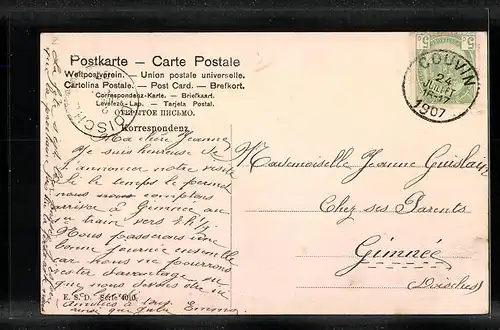 Postkarte – Carte Postale
Weltpostverein. – Union postale universelle.
Cartolina Postale. – Post Card. – Brefkort.
Correspondenz-Karte. – Briefkaart.
Levelező-Lap. – Tarjeta Postal.
ОТКРЫТОЕ ПИСЬМО.
Korrespondenz
5 5
COUVIN
24
JUILLET
1907
Ma chère Jeanne,
Je suis heureuse de
t'annoncer notre visite
Si le temps le permet
nous comptons
arriver à Gimnée au
train vers 2 h ½
Nous passerons une
bonne journée ensemble
car nous ne pourrons
rester davantage vu
que nous devons
amitiés à tous
ainsi que Emma
E. S. D. Serie 4010.
Mademoiselle Jeanne Guislain
Chez ses Parents
Gimnée
(Doische)